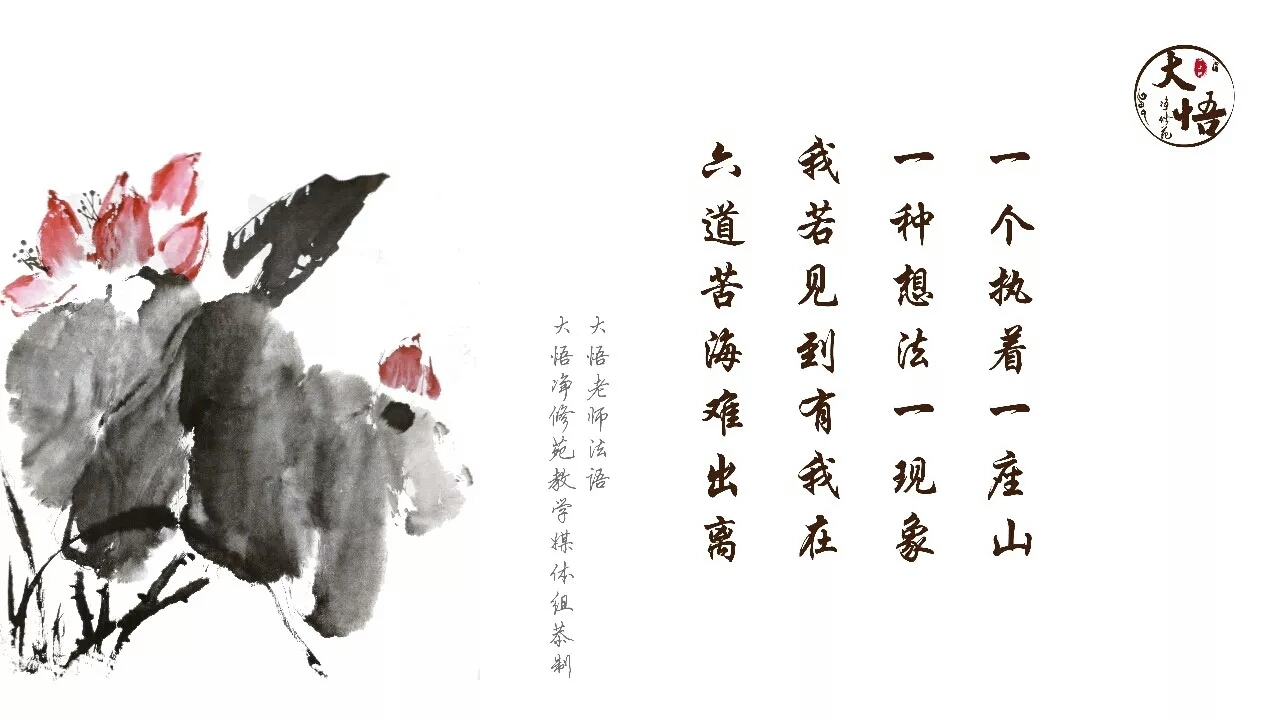 大悟
净修苑
一个执着一座山
一种想法一现象
我若见到有我在
六道苦海难出离
大悟老师法语
大悟净修苑教学媒体组恭制